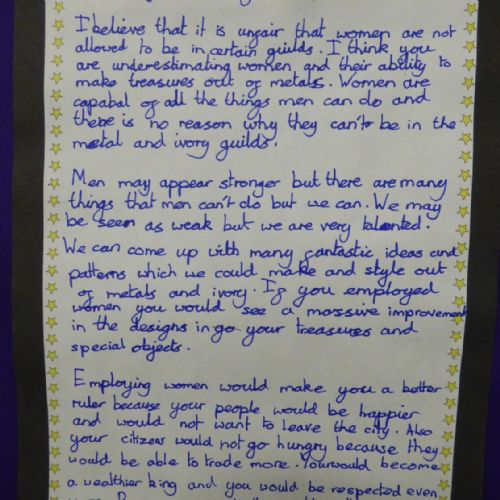 I believe that it is unfair that women are not
allowed to be in certain guilds. I think you
are underestimating women and their ability to
make treasures out of metals. Women are
capabal of all the things men can do and
there is no reason why they can't be in the
metal and ivory guilds.
Men may appear stronger but there are many
things that men can't do but we can. We may
be seen as weak but we are very talented.
We can come up with many fantastic ideas and
patterns which we could make and style out
of metals and ivory. If you employed
women you would see a massive improvement
in the designs in go your treasures and
special objects.
Employing women would make you a better
ruler because your people would be happier
and would not want to leave the city. Also
your citizens would not go hungry because they
would be able to trade more. You would become
a wealthier king and you would be respected even